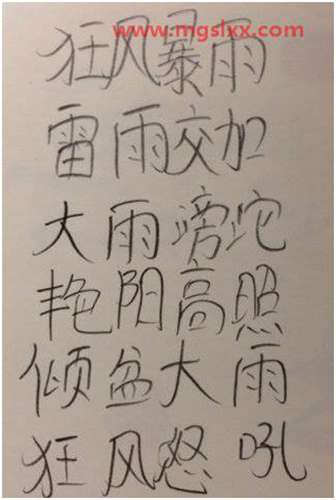 www.mgslxx.com
狂风暴雨
雷雨交加
大雨滂沱
艳阳高照
倾盆大雨
狂风怒吼